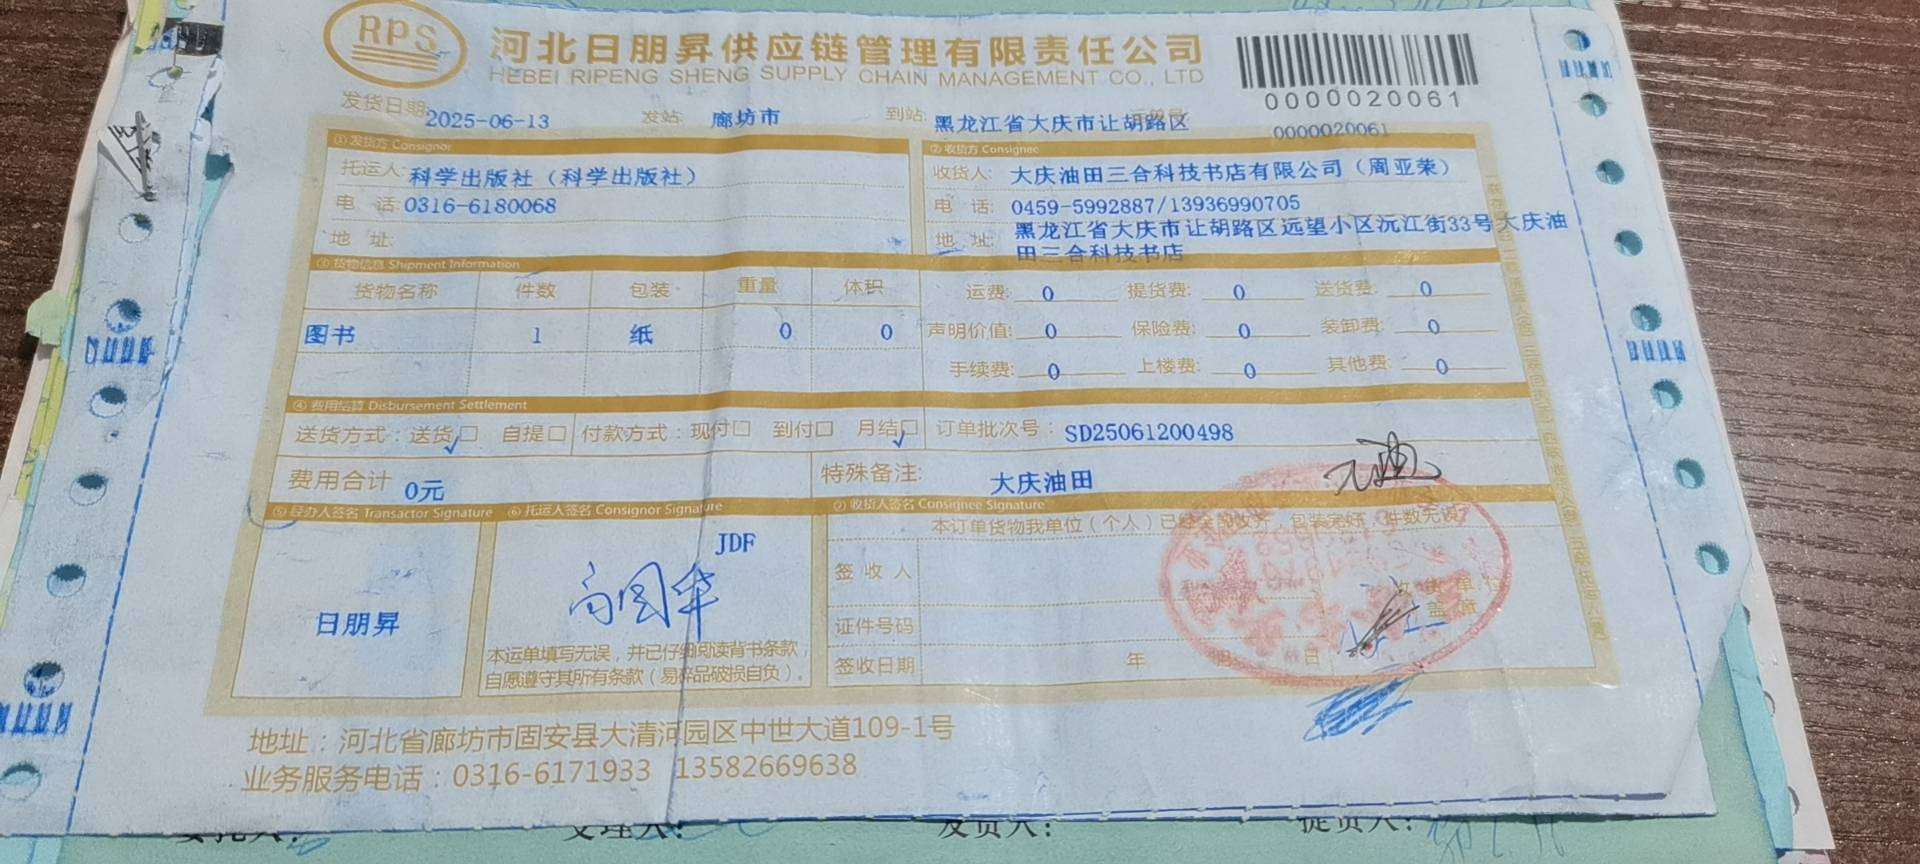 RPS
河北日朋昇供应链管理有限责任公司
HEBEI RIPENG SHENG SUPPLY CHAIN MANAGEMENT CO., LTD
0000020061
发货日期: 2025-06-13 发站: 廊坊市 到站: 黑龙江省大庆市让胡路区 运单号: 0000020061
① 发货方 Consignor ② 收货方 Consignee
托运人: 科学出版社（科学出版社） 收货人: 大庆油田三合科技书店有限公司（周亚荣）
电 话: 0316-6180068 电 话: 0459-5992887/13936990705
地 址: 地 址: 黑龙江省大庆市让胡路区远望小区沅江街33号大庆油
田三合科技书店
③ 货物信息 Shipment Information
货物名称 件数 包装 重量 体积 运费: 0 提货费: 0 送货费: 0
图书 1 纸 0 0 声明价值: 0 保险费: 0 装卸费: 0
手续费: 0 上楼费: 0 其他费: 0
④ 费用结算 Disbursement Settlement
送货方式：送货☐ 自提☐ 付款方式：现付☐ 到付☐ 月结☐ 订单批次号： SD25061200498
费用合计 0元 特殊备注: 大庆油田
⑤ 经办人签名 Transactor Signature ⑥ 托运人签名 Consignor Signature ⑦ 收货人签名 Consignee Signature
本订单货物我单位（个人）已经全部收齐，包装完好，件数无误
JDF
签 收 人
日朋昇
证件号码
本运单填写无误，并已仔细阅读背书条款，
自愿遵守其所有条款（易碎品破损自负）。
签收日期 年 月 日
地址：河北省廊坊市固安县大清河园区中世大道109-1号
业务服务电话：0316-6171933 13582669638
受理人: 发货人: 提货人: